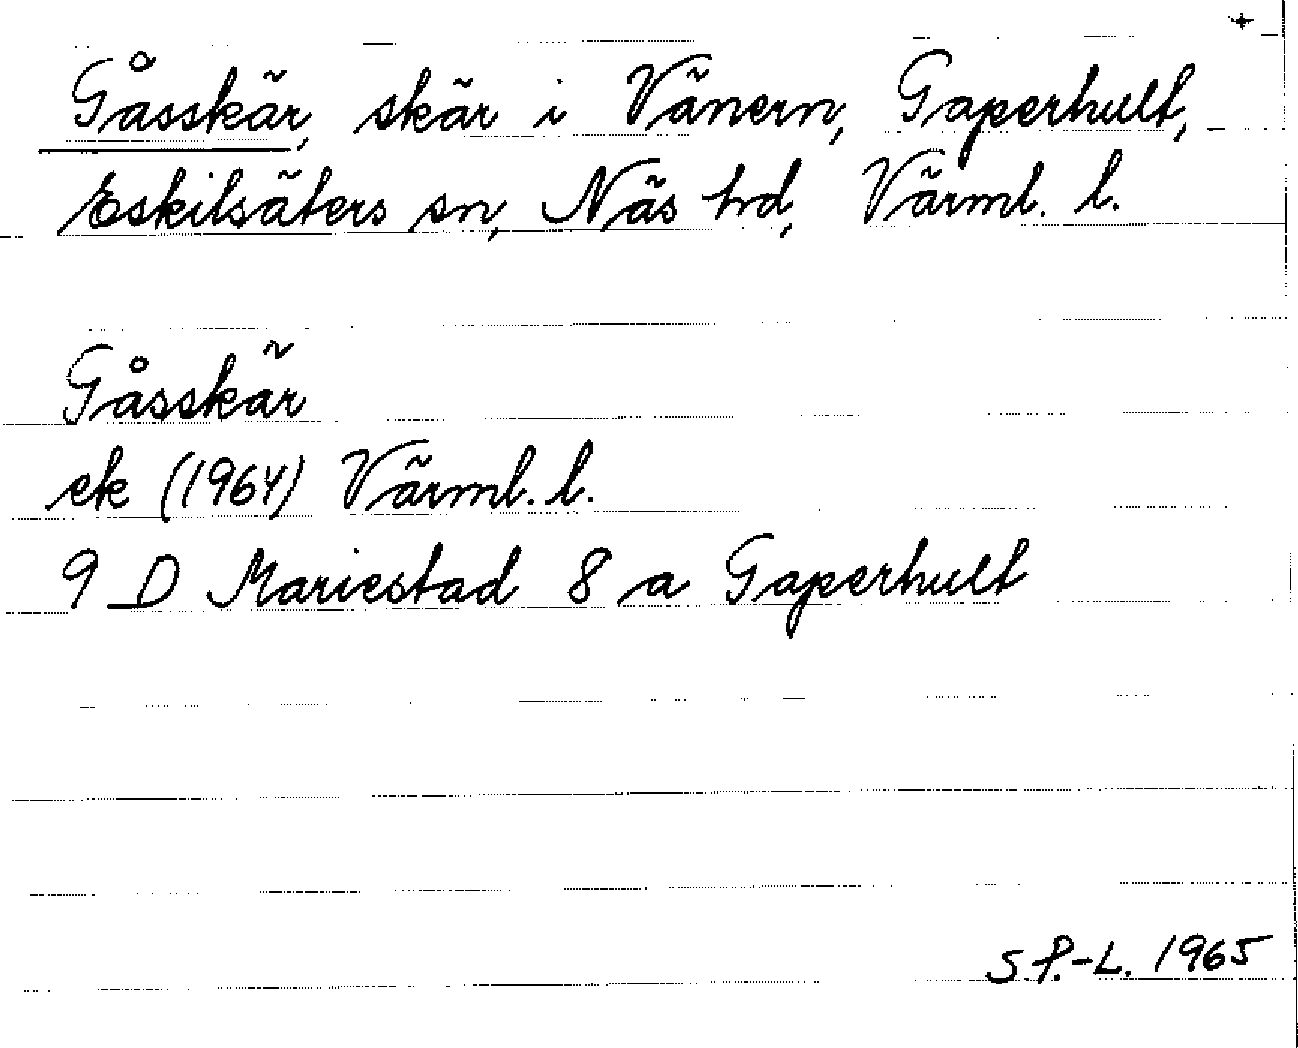 +
Gåsskär, skär i Vänern, Gaperhult,
Eskilsäters sn, Näs hd, Värml. l.
Gåsskär
ek (1964) Värml. l.
9 D Mariestad 8 a Gaperhult
S.P.-L. 1965